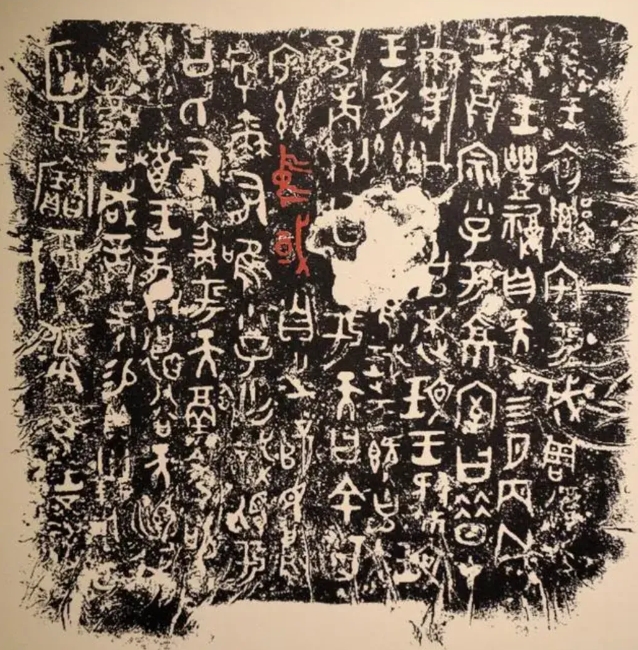 隹王初遷宅于成周復
王豊祼自天才四月丙戌
王誥宗小子于京室曰昔才
爾考公氏克玟王肆玟
王受茲隹珷王既克大
邑商則廷告于天曰余其
宅茲中或自之乂民烏
虖爾有唯小子亡識視于
公氏有爵于天徹令敬
享哉叀王恭德谷天順我
不敏王咸誥何易貝卅朋用乍
公寶尊彝隹王五祀